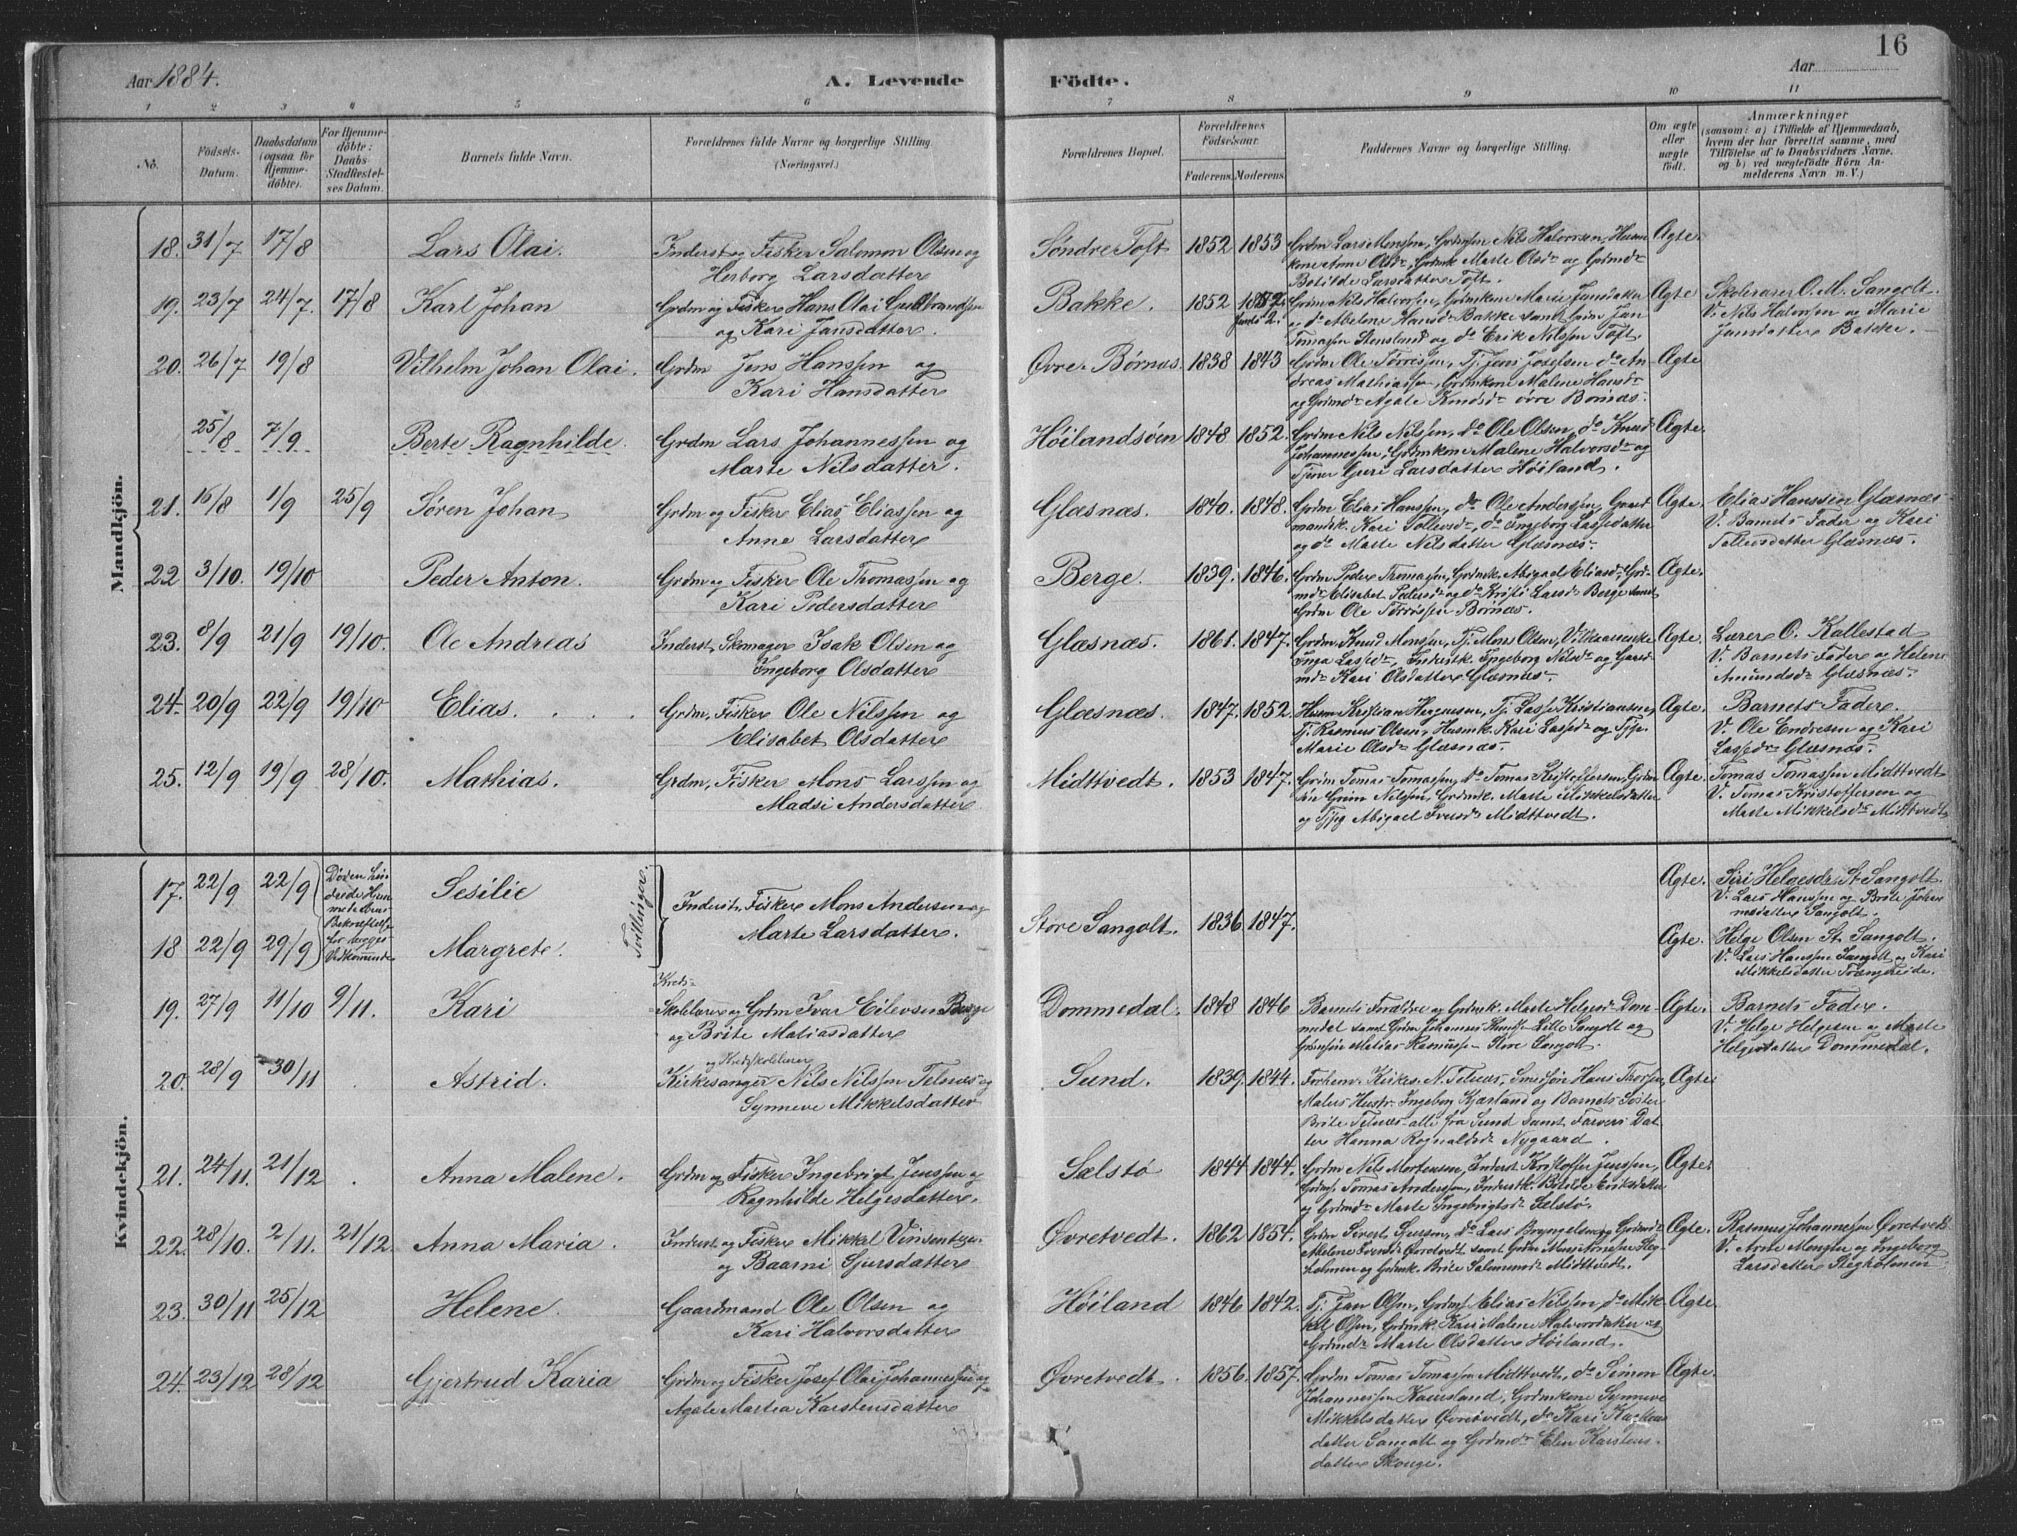 16
Aar 1884.
A. Levende Födte.
Aar
1 2 3 4 5 6 7 8 9 10 11
No.
Födsels-Datum.
Daabsdatum (ogsaa for Hjemmedöbte).
For Hjemmedöbte: Daabs-Stadfæstelses Datum.
Barnets fulde Navn.
Forældrenes fulde Navne og borgerlige Stilling. (Næringsvei.)
Forældrenes Bopæl.
Forældrenes Födselsaar.
Faderens. Moderens.
Faddernes Navne og borgerlige Stilling.
Om ægte eller uægte födt.
Anmærkninger
(saasom: a) i Tilfælde af Hjemmedaab, hvem der har forrettet samme, med Tilföielse af to Daabsvidners Navne. og b) ved uægtefödte Börn Anmelderens Navn m. V.)
Mandkjön.
18. 31/7 17/8 Lars Olai. Inderst og Fisker Salomon Olsen og
Herborg Larsdatter Søndre Toft 1852 1853 Grdm Lars Monsen, Grdmsøn Nils Halvorsen, Husm
kone Anne Olsdr, Grdmk Marte Olsdr og Grdmdr
Botilde Larsdatter Toft. Ægte.
19. 23/7 24/7. 17/8 Karl Johan Grdm og Fisker Hans Olai Guldbrandsen
og Kari Jansdatter. Bakke. 1852 Grdm Nils Halvorsen, Grdmkone Marie Jansdatter
og do Abelone Hansdr Bakke samt Grdm Jan
Tomassen Stensland og do Erik Nilsen Toft Ægte Skolelærer O. M. Sangolt.
V. Nils Halvorsen og Marie
Jansdatter Bakke.
20. 26/7 19/8 Vilhelm Johan Olai. Grdm Jens Hansen og
Kari Hansdatter Øvre Børnæs. 1838 1843 Grdm Ole Torressen, Tj. Jens Josefsen do An-
dreas Mathiassen, Grdmkone Malene Hansdr
og Grdmdr Agate Knudsdr øvre Bornæs. Ægte
25/8 7/9 Berte Ragnhilde. Grdm Lars Johannessen og
Marte Nilsdatter. Høilandsøen 1848 1852. Grdm Nils Nilssen, do Ole Olsen, do Knud
Johannessen, Grdmkone Malene Halvorsdr og
Tjener Guri Larsdatter Høiland. Ægte.
21. 16/8 1/9 25/9 Søren Johan Grdm og Fisker Elias Eliassen og
Anne Larsdatter Glæsnæs. 1840. 1848. Grdm Elias Hanssen, do Ole Anderssen, Gaard
mandsk. Kari Tollevsdr, do Ingeborg Lassedatter
og do Marte Nilsdatter Glæsnæs. Ægte. Elias Hanssen Glæsnæs
V. Barnets Fader og Kari
Tollevsdatter Glæsnæs.
22 3/10. 19/10 Peder Anton. Grdm og Fisker Ole Thomassen og
Kari Pedersdatter Berge. 1839. 1846. Grdm Peder Thomassen, Grdmk. Abigael Eliasdr, Grd-
mdr Elisabet Pedersdr og do Kristi Larsdr Berge samt
Grdm Ole Torressen Børnæs. Ægte.
23. 8/9 21/9 19/10. Ole Andreas Inderst. Skomager Isak Olsen og
Ingeborg Olsdatter Glæsnæs. 1861. 1847. Grdm Knud Monssen, Tj. Mons Olsen,
Inga Lassedr, Inderstk. Ingeborg Nilsdr og Gaard-
mdr Kari Olsdatter Glæsnæs. Ægte. Lærer O. Kallestad
V. Barnets Fader og Helene
Amundsdr Glæsnæs.
24. 20/9 22/9 19/10 Elias. Grdm, Fisker Ole Nilssen og
Elisabet Olsdatter Glæsnæs. 1847. 1852. Husm Kristian Magnussen, Tj. Lasse Kristiansen,
Tj. Rasmus Olsen, Husmk. Kari Lassedr og Tjpe
Marie Olsdr Glæsnæs. Ægte. Barnets Fader.
V. Ole Endresen og Kari
Lassedr Glæsnæs.
25. 12/9 19/9 28/10. Mathias. Grdm, Fisker Mons Larssen og
Madsi Andersdatter Midttvedt. 1853 1847. Grdm Tomas Tomassen, do Tomas Kristoffersen, Grdm
søn Grim Nilsen, Grdmk. Marte Mikkelsdatter
og Tjpg Abigael Iversdr Midttvedt. Ægte. Tomas Tomassen Midttvedt
V. Tomas Kristoffersen og
Marte Mikkelsdr Midttvedt
Kvindekjön.
17. 22/9 22/9 Sesilie Tvillinger. Inderst. Fisker Mons Andersen og
Marte Larsdatter. Store Sangolt. 1836 1847. Ægte. Siri Helgesdr St Sangolt.
V. Lars Hanssen og Brite Johan
nesdatter Sangolt.
18 22/9 29/9 Margrete. Ægte. Helge Olsen St. Sangolt.
V. Lars Hanssen Sangolt og Kari
Mikkelsdatter Trængereide.
19. 27/9 11/10 9/11. Kari Kreds-
Skolelærer og Grdm Ivar Eilevsen Berge
og Brite Matiasdatter Dommedal. 1848 1846 Barnets Forældre og Grdmk. Marte Helgesdr Dom-
medal samt Grdm Johannes Lille Sangolt og
Grdmsøn Matias Rasmussen Store Sangolt. Ægte. Barnets Fader.
V. Helge Helgesen og Marte
Helgesdatter Dommedal.
20. 28/9 30/11 Astrid. og Kredsskolelærer
Kirkesanger Nils Nilssen Telnæs og
Synneve Mikkelsdatter Sund. 1839. 1844. Forhem. Kirkes. N. Telnæs, Hans
Malers Hustr. Ingeborg Kjærland og Barnets Søster
Brite Telnæs alle fra Sund samt Farvers Dat
ter Hanna Rognaldsdr Nygaard. Ægte.
21. 24/11. 21/12 Anna Malene. Grdm og Fisker Ingebrigt Jenssen og
Ragnhilde Helgesdatter. Sælstø 1844 1844. Grdm Nils Mortensen, Inderst Kristoffer Jenssen,
Grdms. Tomas Anderssen, Inderstk. Botilde Eriksdatter
og Grdmdr Marte Ingebrigtsdr Sælstø. Ægte.
22. 28/10. 2/11. 21/12 Anna Maria. Inderst og Fisker Mikkel Vinsentsen
og Baarni Sjursdatter Øvretvedt. 1862 1854. Grdm Sivert Iversen, do Lars Brynjelsen og Grdmdr
Malene Øvretvedt samt Grdm Steg-
holmen og Grdmk. Brite Salomonsdr Midttvedt. Ægte. Rasmus Johannessen Øvretvedt
V. Arne Monsen og Ingeborg
Larsdatter Stegholmen
23. 30/11 25/12 Helene. Gaardmand Ole Olsen og
Kari Halvorsdatter Høiland 1846 1842. Tj. Jan Olsen, Grdms. Elias Nilssen, do Mik-
kel Olsen, Grdmk. Kari Malene Halvorsdatter og
Grdmdr Marte Olsdatter Høiland. Ægte
24. 23/12 28/12 Gjertrud Karia Grdm og Fisker Josef Olai Johannessen og
Agate Martea Karstensdatter Øvretvedt. 1856. 1857. Grdm Tomas Tomassen Midttvedt, do Simon
Johannessen Kausland, Grdmkone Synneve
Mikkelsdatter Øvretvedt, do Kari Karstens
datter Sangolt og Grdmdr Elen Karstens-
datter Skouge. Ægte.